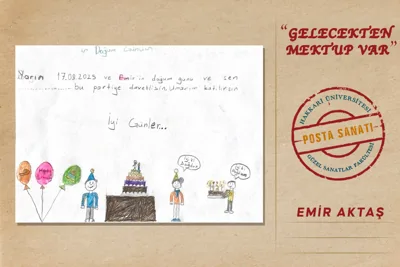 Doğum Günüm
Yarın 17.08.2025 ve Emir'in doğum günü ve sen
bu partiye davetlisin. Umarım katılırsın
İyi Günler...
"GELECEKTEN
MEKTUP VAR"
HAKKARİ ÜNİVERSİTESİ
POSTA SANATI
GÜZEL SANATLAR FAKÜLTESİ
EMİR AKTAŞ